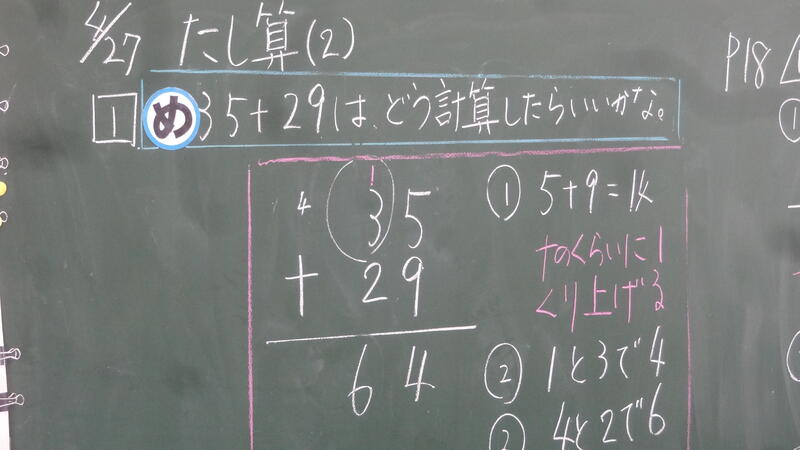 4/27 たし算(2)
1 め 35+29は、どう計算したらいいかな。
1
4 35
+ 29
64
① 5+9=14
十のくらいに1
くり上げる
② 1と3で4
③ 4と2で6
P18
①